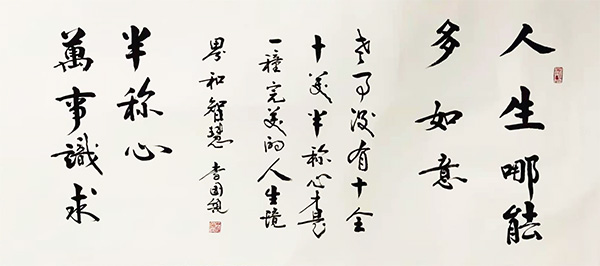 人生哪能
多如意
世事没有十全
十美半称心才是
一種完美的人生境
界和智慧 李国
半称心
萬事識求